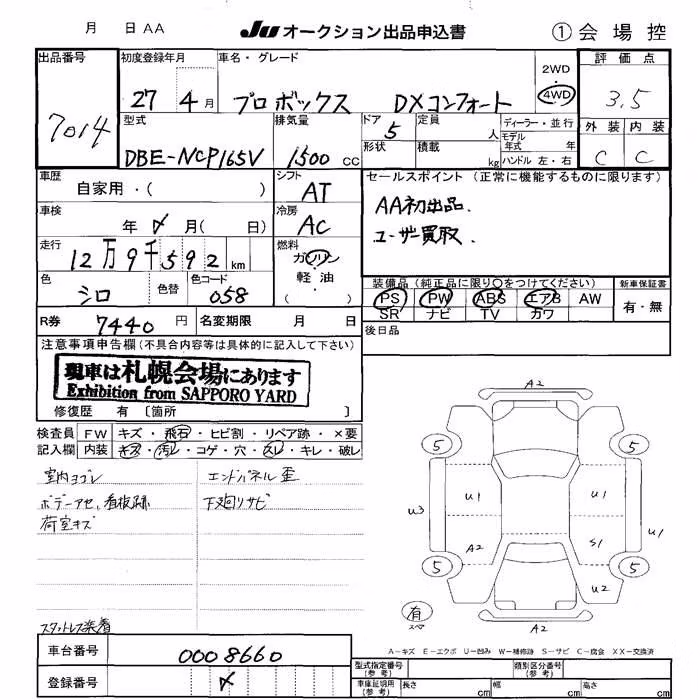 月 日 AA JU オークション出品申込書 ① 会場控
出品番号 初度登録年月 車名・グレード 2WD 評価点
7014 27年 4月 プロボックス DXコンフォート 4WD 3.5
型式 排気量 ドア 定員 ディーラー・並行 外装 内装
DBE-NCP165V 1500 CC 5 人 モデル年式 年 C C
形状 積載 kg ハンドル 左・右
車歴 シフト セールスポイント (正常に機能するものに限ります)
自家用・( ) AT AA初出品.
車検 冷房 ユーザー買取.
年 〆 月( 日) AC
走行 燃料
12万9千592 km ガソリン
色 色替 色コード 軽油 装備品(純正品に限り○をつけてください) 新車保証書
シロ 058 ( ) PS PW ABS エアB AW 有・無
R券 7440 円 名変期限 月 日 SR ナビ TV カワ
注意事項申告欄(不具合内容等は具体的に記入して下さい) 後日品
現車は札幌会場にあります
Exhibition from SAPPORO YARD
修復歴 有 〔箇所 〕
検査員 FW キズ・飛石・ヒビ割・リペア跡・×要
記入欄 内装 キズ・汚レ・コゲ・穴・スレ・キレ・破レ
室内ヨゴレ エンドパネル歪
ボデーアセ、看板跡 下廻りサビ
荷室キズ
スタットレス装着
A2
5 5
U1 U1
U3 U1
A2 S1
5 5
U2
有 スペア A2
A-キズ E-エクボ U-凹み W-補修跡 S-サビ C-腐食 XX-交換済
車台番号 0008660 型式指定番号(参考) 類別区分番号(参考)
登録番号 〆 車庫証明用(参考) 長さ cm 幅 cm 高さ cm